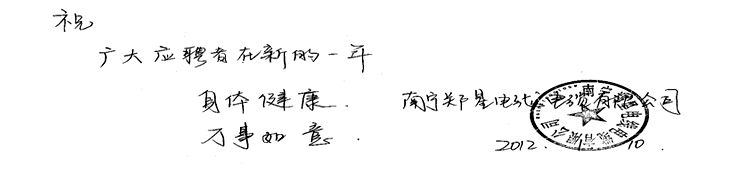 祝
广大应聘者在新的一年
身体健康. 南宁郑星电线电缆有限公司
万事如意. 2012. 1. 10.